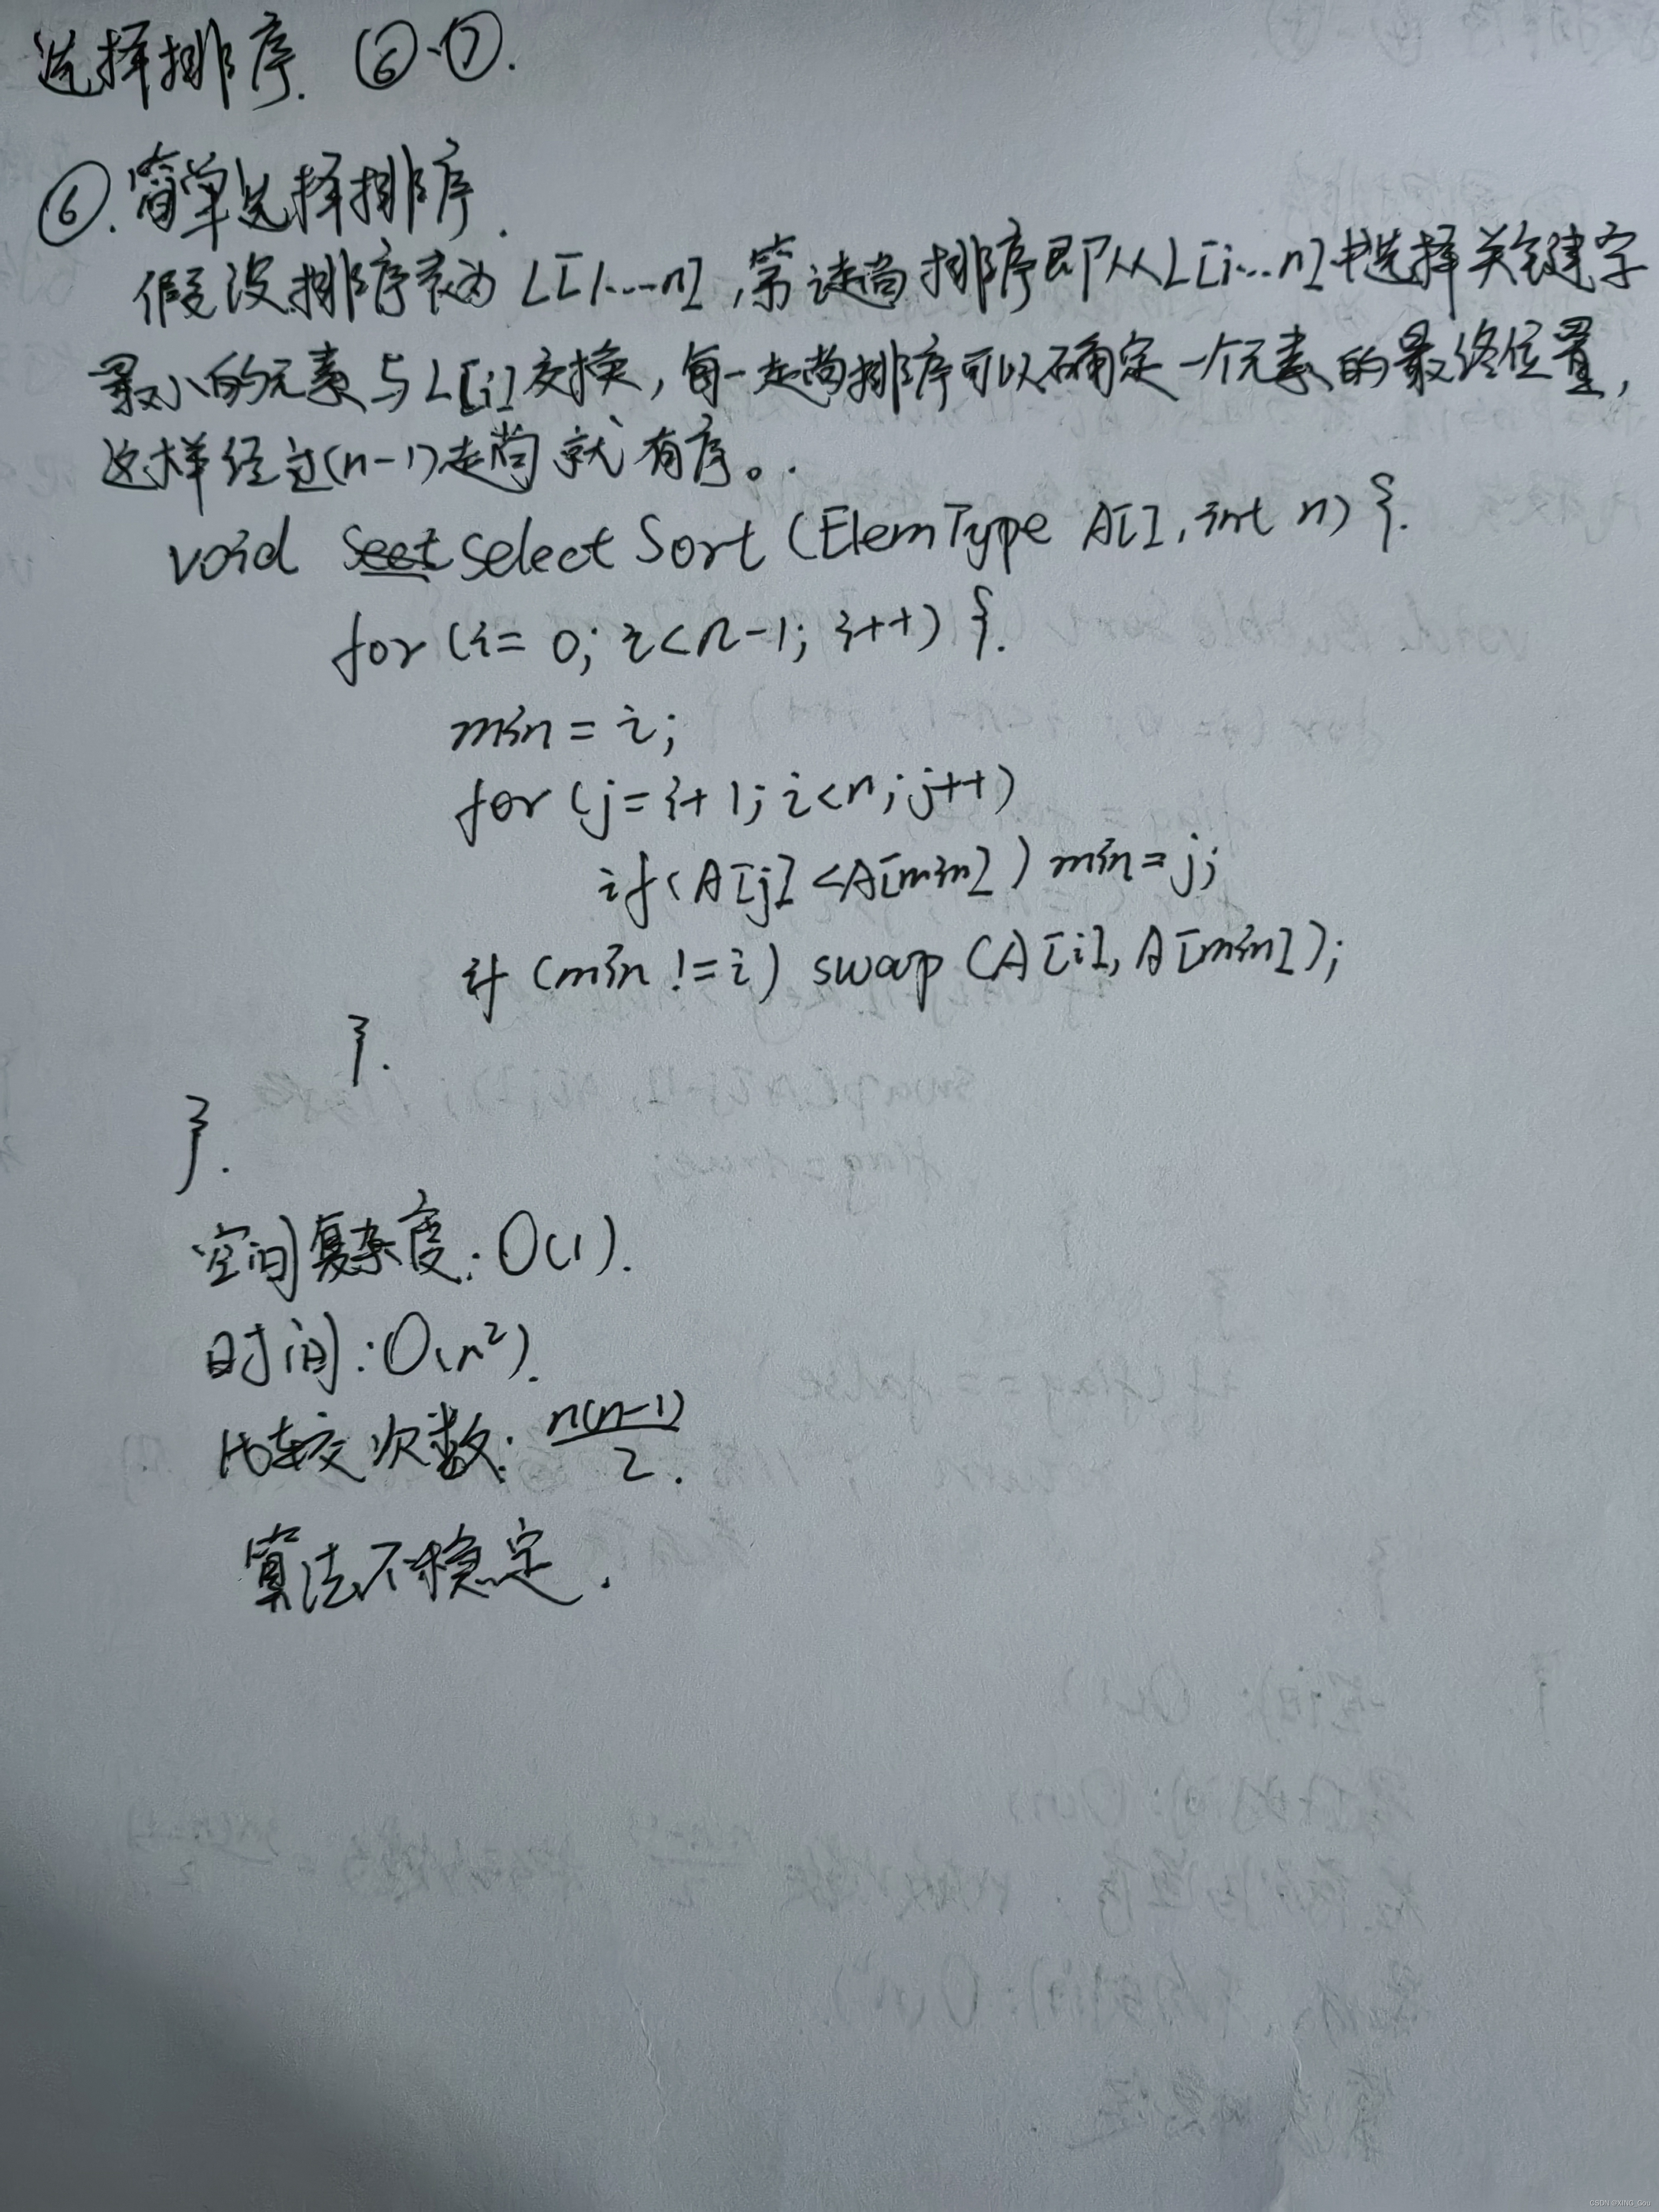 选择排序. ⑥-⑦.
⑥. 简单选择排序.
假设排序表为 L[1...n], 第i趟排序即从L[i...n]中选择关键字
最小的元素与L[i]交换, 每一趟排序可以确定一个元素的最终位置,
这样经过(n-1)趟就有序。.
void select Sort (ElemType A[], int n) {.
for (i= 0; i<n-1; i++) {.
min = i;
for (j=i+1; i<n; j++)
if (A[j] <A[min]) min=j;
if (min !=i) swap (A[i], A[min]);
}.
}.
空间复杂度: O(1).
时间: O(n²).
比较次数: n(n-1)/2.
算法不稳定.
CSDN @XING_Gou